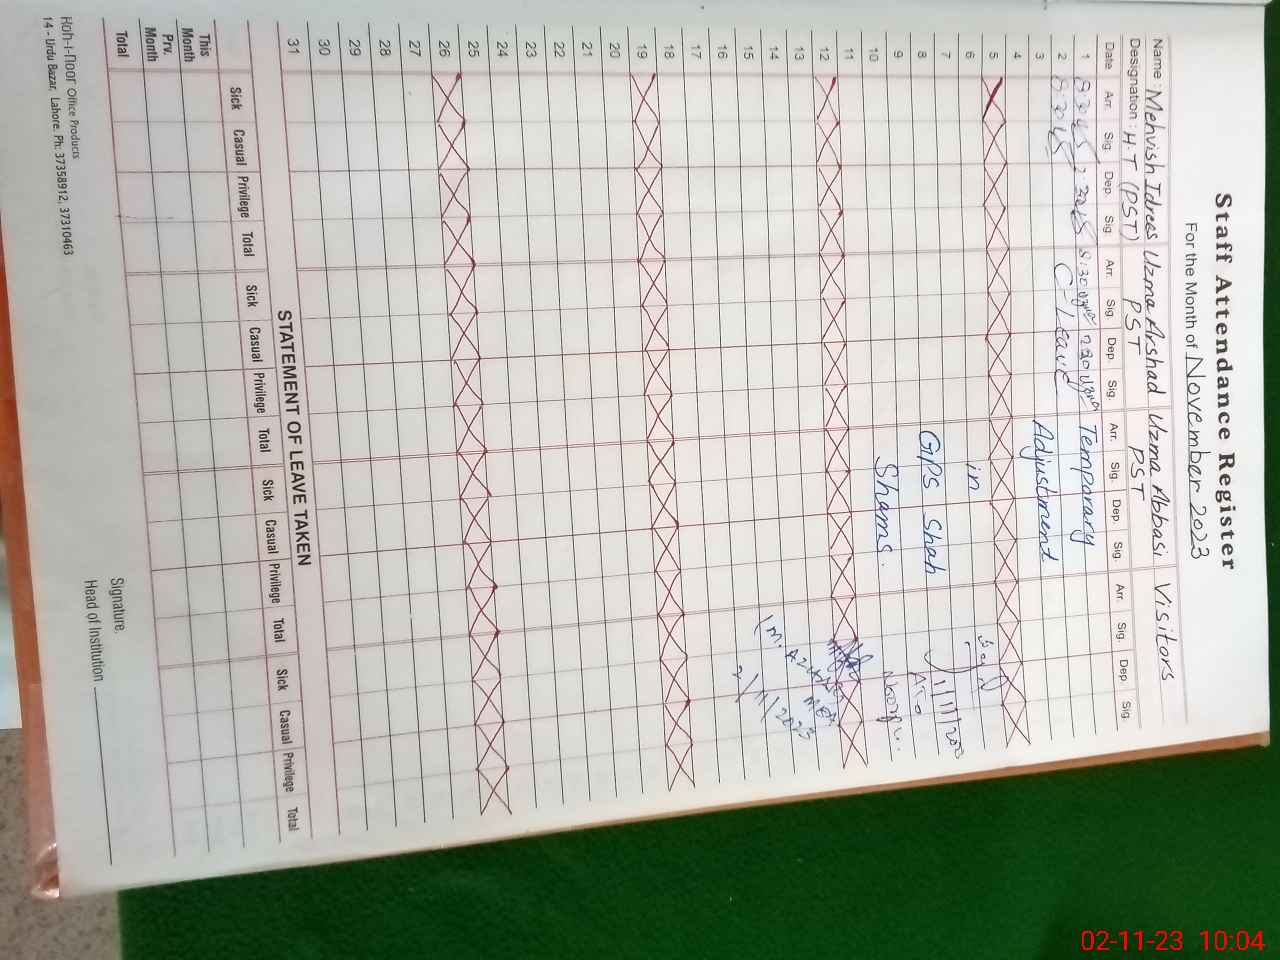 Staff Attendance Register
For the Month of November 2023
Name : Mehvish Idrees Uzma Arshad Uzma Abbasi Visitors
Designation : H.T (PST) PST PST
Date Arr. Sig. Dep. Sig. Arr. Sig. Dep. Sig. Arr. Sig. Dep. Sig. Arr. Sig. Dep. Sig.
1 8:30 8:30 Uzma 2:30 Uzma Temporary
2 8:30 C-Leave
3 Adjustment
4
5
6 in
7 1/11/2023
8 GPS Shah AEO
9
10 Shams.
11
12 MEA
13
14
15 2/11/2023
16
17
18
19
20
21
22
23
24
25
26
27
28
29
30
31
STATEMENT OF LEAVE TAKEN
Sick Casual Privilege Total Sick Casual Privilege Total Sick Casual Privilege Total Sick Casual Privilege Total
This Month
Prv. Month
Total
Signature.
Head of Institution
Koh-i-noor Office Products
14 - Urdu Bazar, Lahore. Ph: 37358912, 37310463
02-11-23 10:04